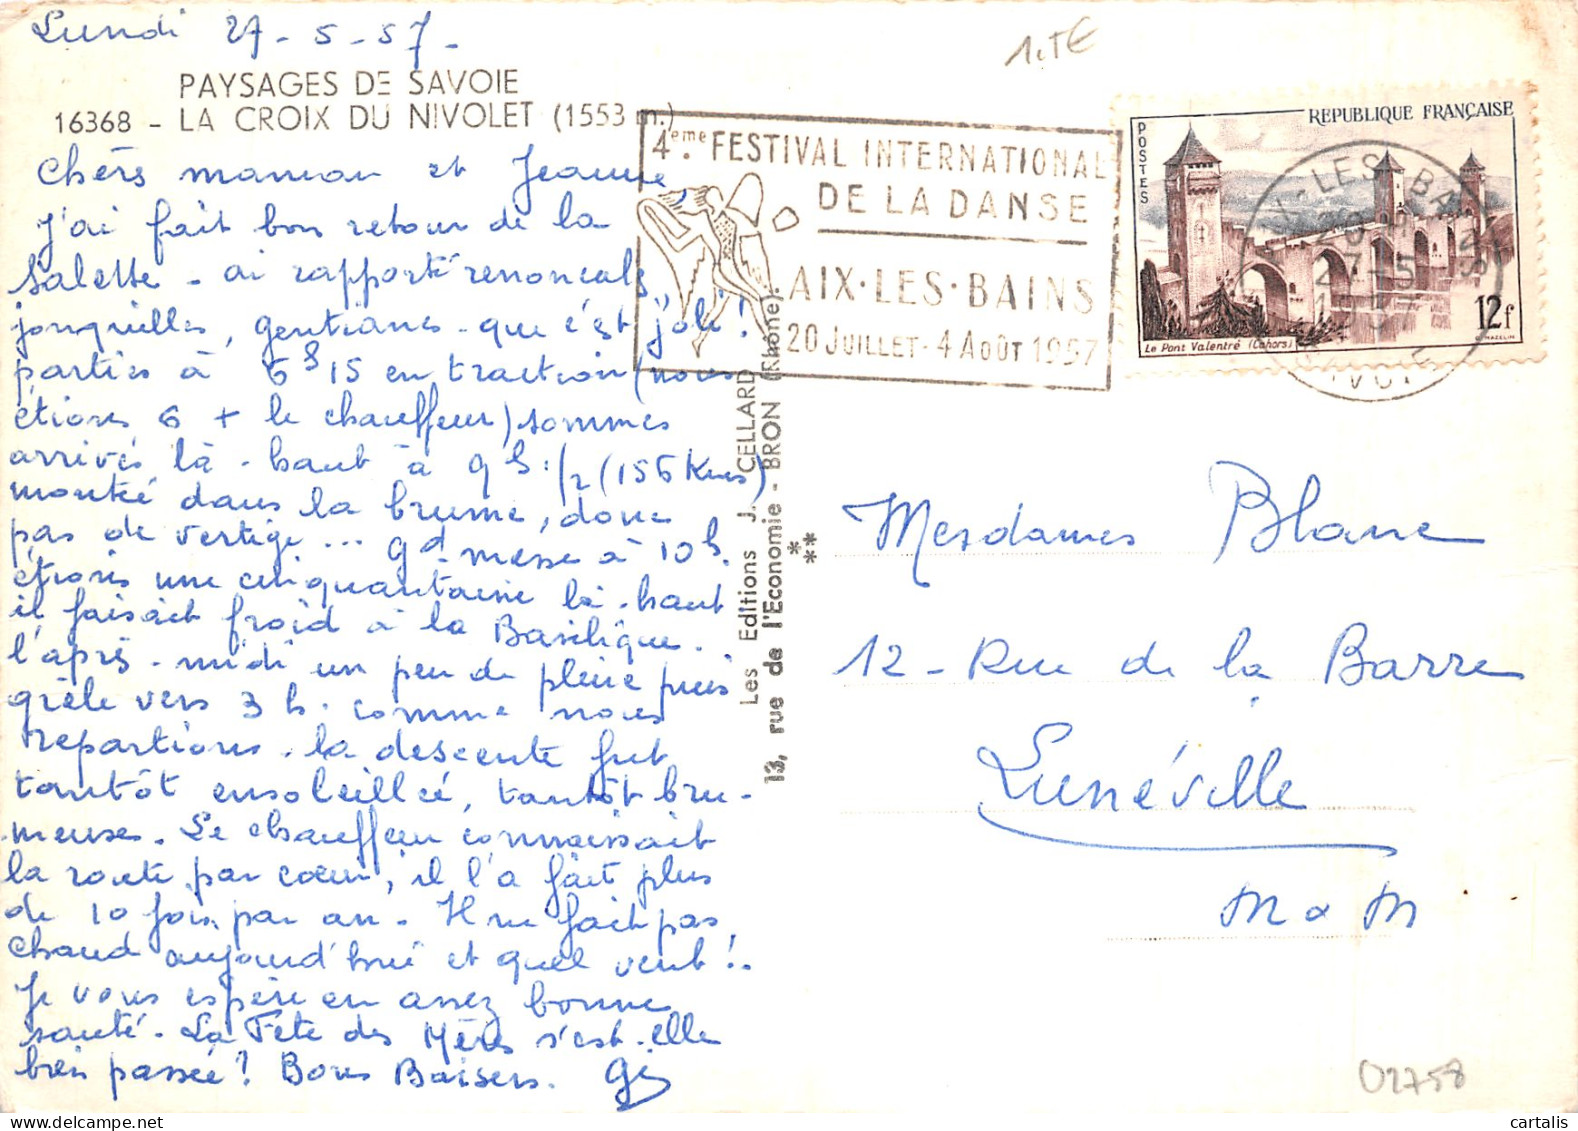 Lundi 27-5-57-
PAYSAGES DE SAVOIE
16368 - LA CROIX DU NIVOLET (1553 m.)
Chères maman et Jeanne
J'ai fait bon retour de la
Salette - ai rapporté renoncules,
jonquilles, gentianes - que c'est joli !
parties à 6h 15 en traction (nous
étions 6 + le chauffeur) sommes
arrivés là-haut à 9h 1/2 (156 Kms)
montée dans la brume, donc
pas de vertige ... gd messe à 10h.
étions une cinquantaine là-haut
il faisait froid à la Basilique.
l'après-midi un peu de pluie puis
grêle vers 3 h. comme nous
repartions. la descente fut
tantôt ensoleillée, tantôt bru-
meuse. Le chauffeur connaissait
la route par cœur, il l'a fait plus
de 10 fois par an. Il ne fait pas
chaud aujourd'hui et quel vent !.
Je vous espère en assez bonne
santé. La Fête des Mères s'est-elle
bien passée ? Bons Baisers.
4ème FESTIVAL INTERNATIONAL
DE LA DANSE
AIX-LES-BAINS
20 JUILLET - 4 AOÛT 1957
Les Editions J. CELLARD
13, rue de l'Economie - BRON (Rhône).
POSTES
REPUBLIQUE FRANÇAISE
Le Pont Valentré (Cahors)
12f
MAZELIN
X-LES-BAINS
27-5
Mesdames Blanc
12 - Rue de la Barre
Lunéville
M & M
02758
cartalis